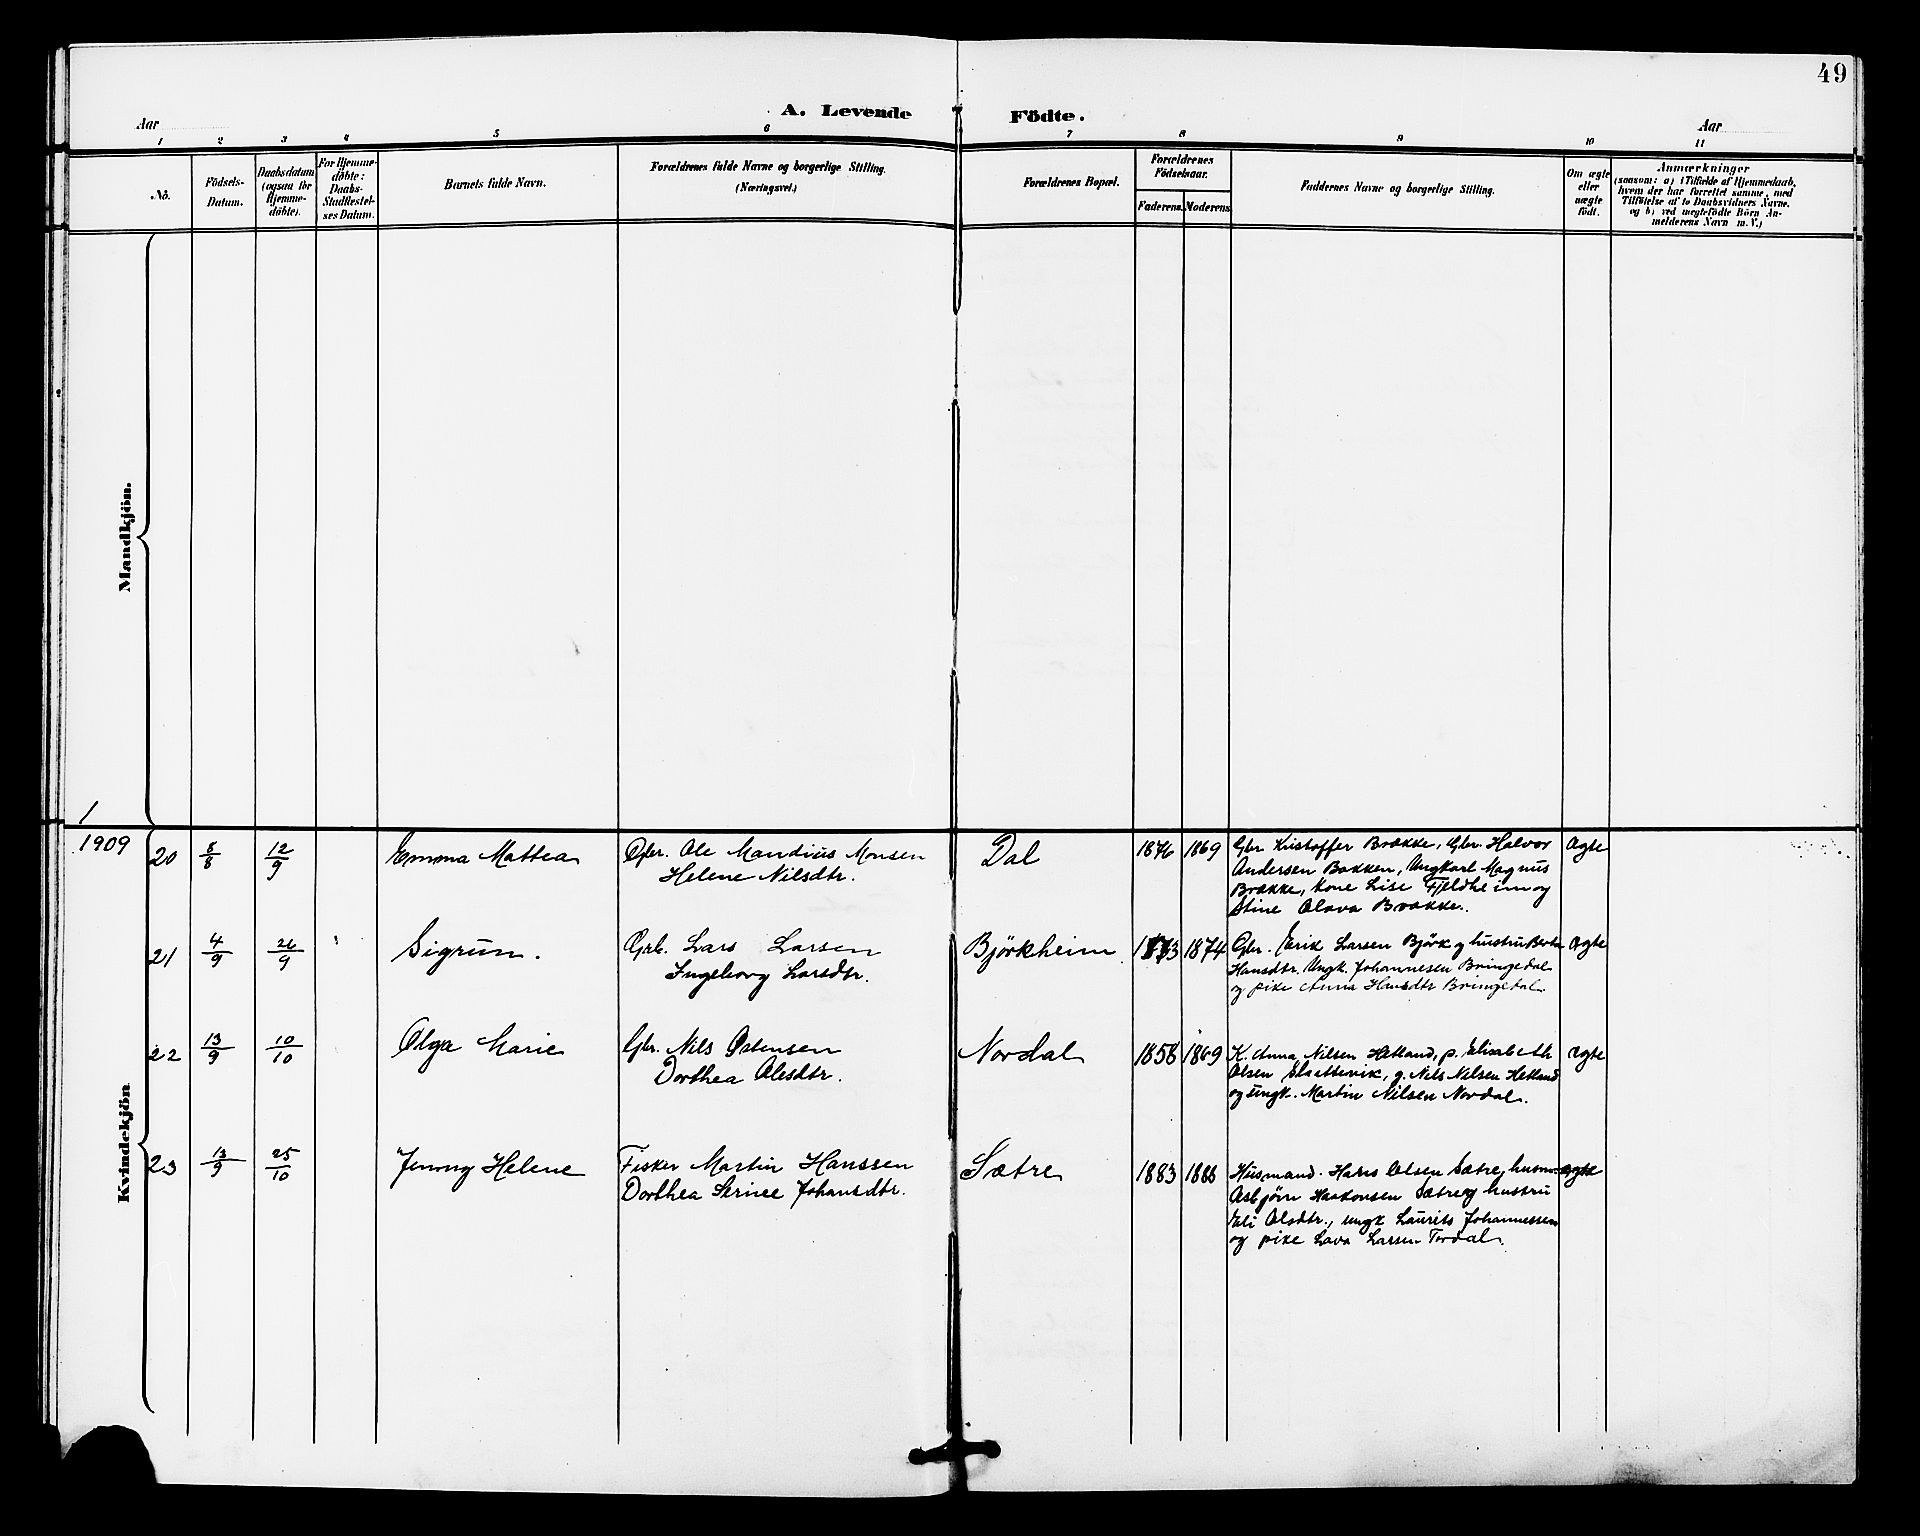 49
A. Levende Födte.
Aar
Aar
1 2 3 4 5 6 7 8 9 10 11
No.
Födsels-
Datum.
Daabsdatum
(ogsaa for
Hjemme-
döbte).
For Hjemme-
döbte:
Daabs-
Stadfæstel-
ses Datum.
Barnets fulde Navn.
Forældrenes fulde Navne og borgerlige Stilling.
(Næringsvei.)
Forældrenes Bopæl.
Forældrenes
Födselsaar.
Faderens.
Moderens.
Faddernes Navne og borgerlige Stilling.
Om ægte
eller
uægte
födt.
Anmærkninger
(saasom: a) i Tilfælde af Hjemmedaab,
hvem der har forrettet samme, med
Tilföielse af to Daabsvidners Navne.
og b) ved uægtefödte Börn An-
melderens Navn m. V.)
Mandkjön.
1
Kvindekjön
1909
20 8/8 12/9 Emma Mattea
Gbr. Ole Mandius Monsen
Helene Nilsdtr.
Dal 1876 1869
Gbr Kristoffer Brække, Gbr. Halvor
Andersen Bakken, Ungkarl Magnus
Brække, kone Lise Fjeldheim og
Stine Olava Brække.
Ægte
21 4/9 26/9 Sigrun.
Grb. Lars Larsen
Ingeborg Larsdtr.
Björkheim 1873 1874
Gbr. Erik Larsen Björk og hustru Berta
Hansdtr. Ungk. Johannesen Bringedal
og pike Anna Hansdtr Bringedal
Ægte
22 13/9 10/10 Olga Marie
Gbr. Nils Ostensen
Dorthea Olesdtr.
Nordal 1858 1869
K. Anna Nilsen Hetland, p. Elisabeth
Olsen Slottevik, g. Nils Nilsen Hetland
og ungk. Martin Nilsen Nordal.
ægte
23 13/9 25/10 Jenny Helene
Fisker Martin Hanssen
Dorthea Serine Johansdtr.
Sætre 1883 1888
Husmand. Hans Olsen Sætre, husm.
Asbjörn Haakonsen Sætre og hustru
Eli Olsdtr., ungk Laurits Johannessen
og pike Lava Larsen Tordal.
ægte